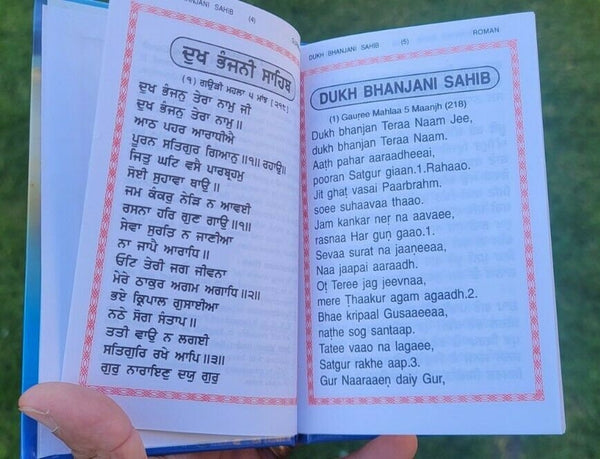 BHANJANI SAHIB (4)
ਦੁਖ ਭੰਜਨੀ ਸਾਹਿਬ
(੧) ਗਉੜੀ ਮਹਲਾ ੫ ਮਾਂਝ [੨੧੮]
ਦੁਖ ਭੰਜਨੁ ਤੇਰਾ ਨਾਮੁ ਜੀ
ਦੁਖ ਭੰਜਨੁ ਤੇਰਾ ਨਾਮੁ ॥
ਆਠ ਪਹਰ ਆਰਾਧੀਐ
ਪੂਰਨ ਸਤਿਗੁਰ ਗਿਆਨੁ ॥੧॥ ਰਹਾਉ॥
ਜਿਤੁ ਘਟਿ ਵਸੈ ਪਾਰਬ੍ਰਹਮੁ
ਸੋਈ ਸੁਹਾਵਾ ਥਾਉ ॥
ਜਮ ਕੰਕਰੁ ਨੇੜਿ ਨ ਆਵਈ
ਰਸਨਾ ਹਰਿ ਗੁਣ ਗਾਉ ॥੧॥
ਸੇਵਾ ਸੁਰਤਿ ਨ ਜਾਣੀਆ
ਨਾ ਜਾਪੈ ਆਰਾਧਿ ॥
ਓਟਿ ਤੇਰੀ ਜਗ ਜੀਵਨਾ
ਮੇਰੇ ਠਾਕੁਰ ਅਗਮ ਅਗਾਧਿ ॥੨॥
ਭਏ ਕ੍ਰਿਪਾਲ ਗੁਸਾਈਆ
ਨਠੇ ਸੋਗ ਸੰਤਾਪ ॥
ਤਤੀ ਵਾਉ ਨ ਲਗਈ
ਸਤਿਗੁਰਿ ਰਖੇ ਆਪਿ ॥੩॥
ਗੁਰੁ ਨਾਰਾਇਣੁ ਦਯੁ ਗੁਰੁ
DUKH BHANJANI SAHIB (5) ROMAN
DUKH BHANJANI SAHIB
(1) Gauree Mahlaa 5 Maanjh (218)
Dukh bhanjan Teraa Naam Jee,
dukh bhanjan Teraa Naam.
Aaṭh pahar aaraadheeai,
pooran Satgur giaan.1.Rahaao.
Jit ghaṭ vasai Paarbrahm.
soee suhaavaa thaao.
Jam kankar neṛ na aavaee,
rasnaa Har guṇ gaao.1.
Sevaa surat na jaaṇeeaa,
Naa jaapai aaraadh.
Oṭ Teree jag jeevnaa,
mere Ṭhaakur agam agaadh.2.
Bhae kripaal Gusaaeeaa,
naṭhe sog santaap.
Tatee vaao na lagaee,
Satgur rakhe aap.3.
Gur Naaraaeṇ daiy Gur,